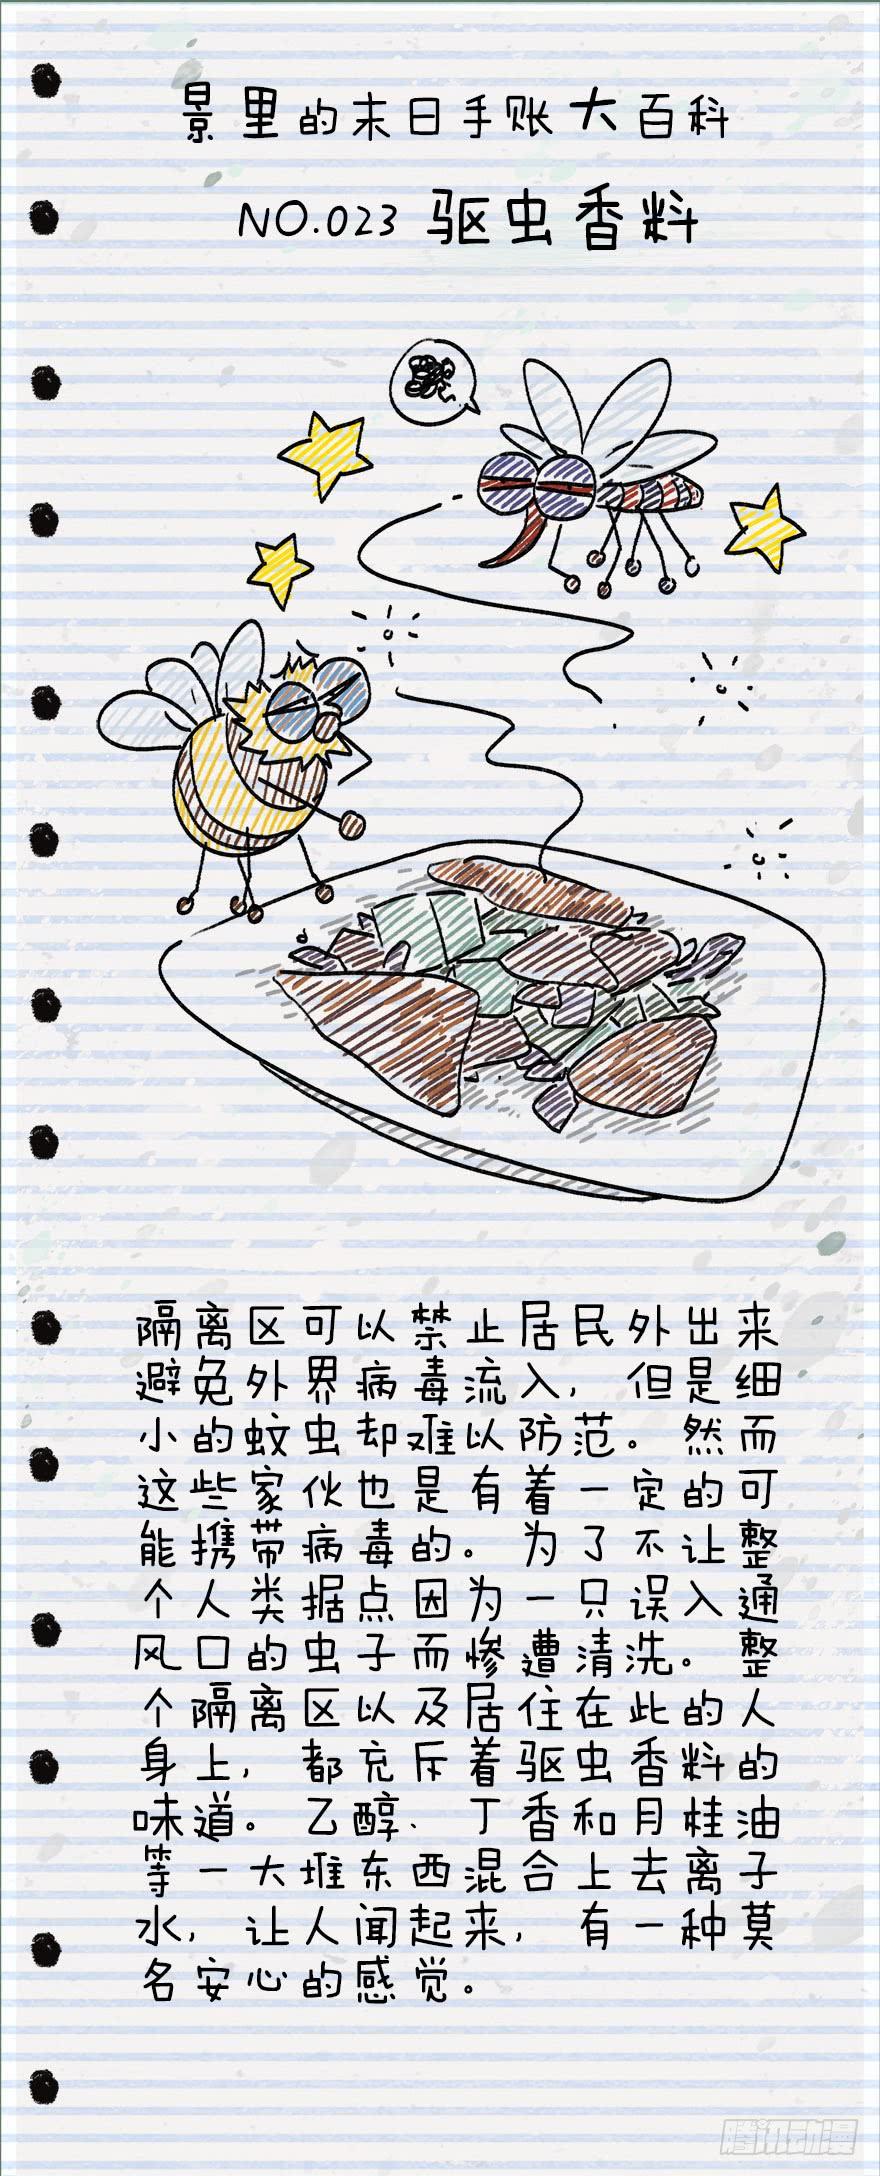 景里的末日手账大百科
NO.023 驱虫香料
隔离区可以禁止居民外出来
避免外界病毒流入，但是细
小的蚊虫却难以防范。然而
这些家伙也是有着一定的可
能携带病毒的。为了不让整
个人类据点因为一只误入通
风口的虫子而惨遭清洗。整
个隔离区以及居住在此的人
身上，都充斥着驱虫香料的
味道。乙醇、丁香和月桂油
等一大堆东西混合上去离子
水，让人闻起来，有一种莫
名安心的感觉。
腾讯动漫